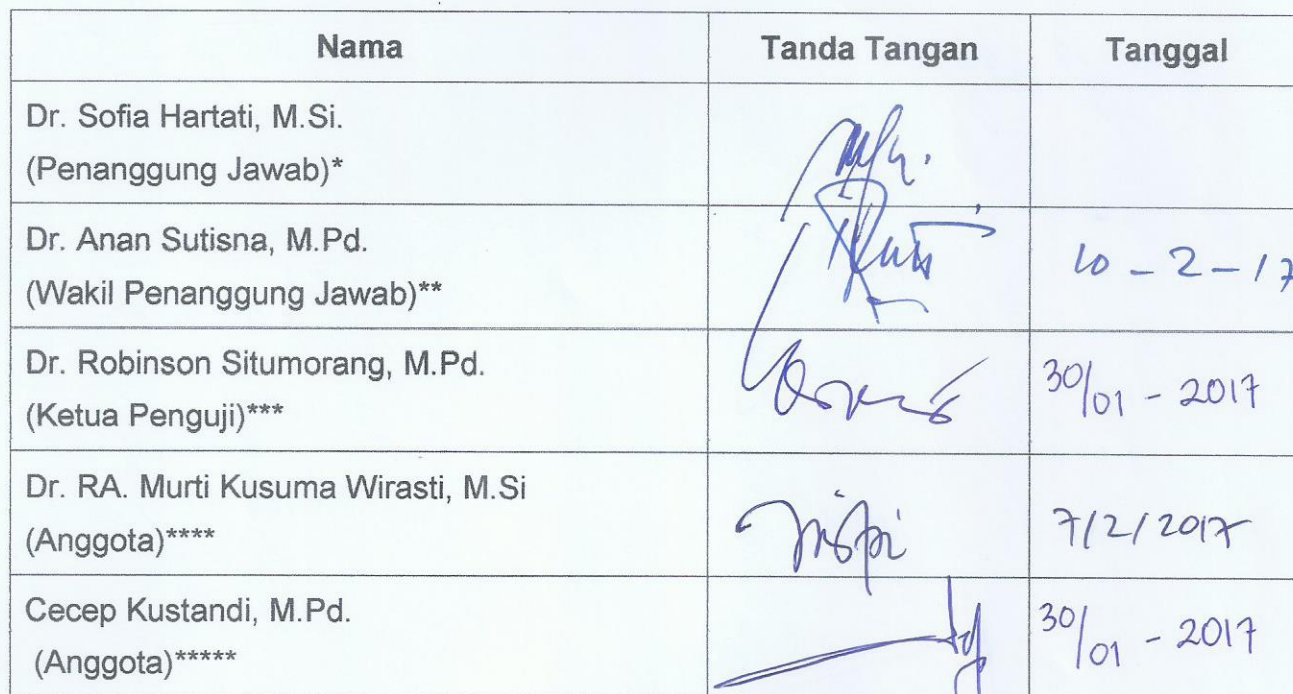 Nama Tanda Tangan Tanggal
Dr. Sofia Hartati, M.Si.
(Penanggung Jawab)*
Dr. Anan Sutisna, M.Pd.
(Wakil Penanggung Jawab)** 10 - 2 - 17
Dr. Robinson Situmorang, M.Pd.
(Ketua Penguji)*** 30/01 - 2017
Dr. RA. Murti Kusuma Wirasti, M.Si
(Anggota)**** 7/2/2017
Cecep Kustandi, M.Pd.
(Anggota)***** 30/01 - 2017